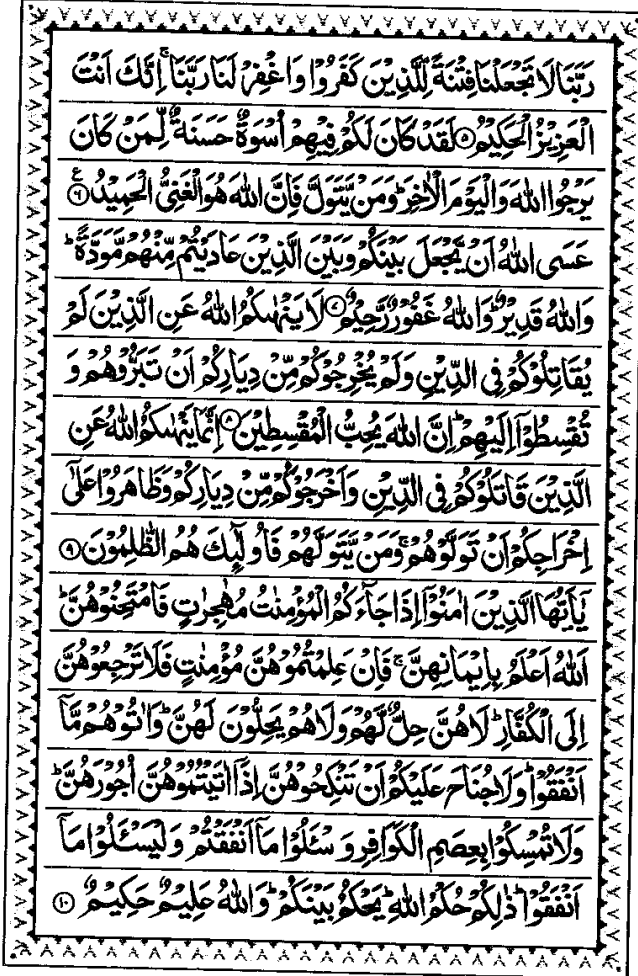 رَبَّنَا لَا تَجْعَلْنَا فِتْنَةً لِّلَّذِيْنَ كَفَرُوْا وَاغْفِرْ لَنَا رَبَّنَا ۚ اِنَّكَ اَنْتَ
الْعَزِيْزُ الْحَكِيْمُ ۝۵ لَقَدْ كَانَ لَكُمْ فِيْهِمْ اُسْوَةٌ حَسَنَةٌ لِّمَنْ كَانَ
يَرْجُوا اللّٰهَ وَالْيَوْمَ الْاٰخِرَ ؕ وَمَنْ يَّتَوَلَّ فَاِنَّ اللّٰهَ هُوَ الْغَنِيُّ الْحَمِيْدُ ۝۶ ع
عَسَى اللّٰهُ اَنْ يَّجْعَلَ بَيْنَكُمْ وَبَيْنَ الَّذِيْنَ عَادَيْتُمْ مِّنْهُمْ مَّوَدَّةً ؕ
وَاللّٰهُ قَدِيْرٌ ؕ وَاللّٰهُ غَفُوْرٌ رَّحِيْمٌ ۝۷ لَا يَنْهٰىكُمُ اللّٰهُ عَنِ الَّذِيْنَ لَمْ
يُقَاتِلُوْكُمْ فِى الدِّيْنِ وَلَمْ يُخْرِجُوْكُمْ مِّنْ دِيَارِكُمْ اَنْ تَبَرُّوْهُمْ وَ
تُقْسِطُوْۤا اِلَيْهِمْ ؕ اِنَّ اللّٰهَ يُحِبُّ الْمُقْسِطِيْنَ ۝۸ اِنَّمَا يَنْهٰىكُمُ اللّٰهُ عَنِ
الَّذِيْنَ قَاتَلُوْكُمْ فِى الدِّيْنِ وَاَخْرَجُوْكُمْ مِّنْ دِيَارِكُمْ وَظَاهَرُوْا عَلٰٓى
اِخْرَاجِكُمْ اَنْ تَوَلَّوْهُمْ ۚ وَمَنْ يَّتَوَلَّهُمْ فَاُولٰٓئِكَ هُمُ الظّٰلِمُوْنَ ۝۹
يٰۤاَيُّهَا الَّذِيْنَ اٰمَنُوْۤا اِذَا جَآءَكُمُ الْمُؤْمِنٰتُ مُهٰجِرٰتٍ فَامْتَحِنُوْهُنَّ ؕ
اَللّٰهُ اَعْلَمُ بِاِيْمَانِهِنَّ ۚ فَاِنْ عَلِمْتُمُوْهُنَّ مُؤْمِنٰتٍ فَلَا تَرْجِعُوْهُنَّ
اِلَى الْكُفَّارِ ؕ لَا هُنَّ حِلٌّ لَّهُمْ وَلَا هُمْ يَحِلُّوْنَ لَهُنَّ ؕ وَاٰتُوْهُمْ مَّاۤ
اَنْفَقُوْا ؕ وَلَا جُنَاحَ عَلَيْكُمْ اَنْ تَنْكِحُوْهُنَّ اِذَاۤ اٰتَيْتُمُوْهُنَّ اُجُوْرَهُنَّ ؕ
وَلَا تُمْسِكُوْا بِعِصَمِ الْكَوَافِرِ وَ سْـَٔلُوْا مَاۤ اَنْفَقْتُمْ وَلْيَسْـَٔلُوْا مَاۤ
اَنْفَقُوْا ؕ ذٰلِكُمْ حُكْمُ اللّٰهِ ؕ يَحْكُمُ بَيْنَكُمْ ؕ وَاللّٰهُ عَلِيْمٌ حَكِيْمٌ ۝۱۰